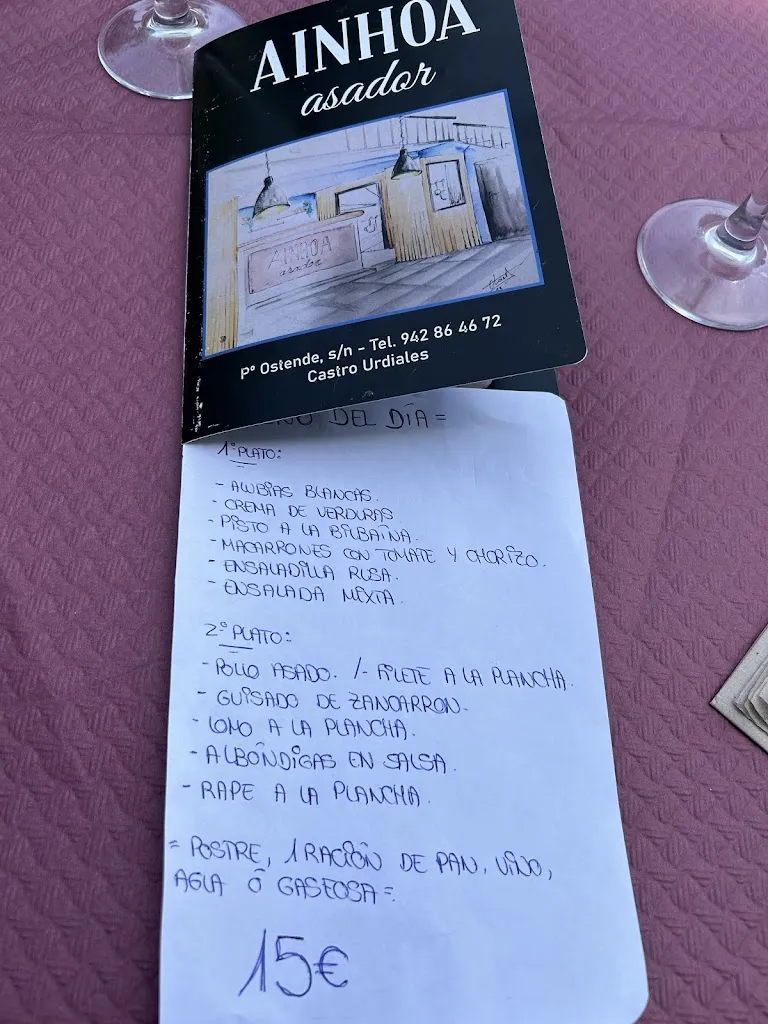 AINHOA
asador
AINHOA
asador
Pº Ostende, s/n - Tel. 942 86 46 72
Castro Urdiales
DEL DÍA =
1º PLATO:
- ALUBIAS BLANCAS.
- CREMA DE VERDURAS
- PISTO A LA BILBAÍNA.
- MACARRONES CON TOMATE Y CHORIZO.
- ENSALADILLA RUSA.
- ENSALADA MIXTA.
2º PLATO:
- POLLO ASADO. /- FILETE A LA PLANCHA.
- GUISADO DE ZANCARRON.
- LOMO A LA PLANCHA.
- ALBÓNDIGAS EN SALSA.
- RAPE A LA PLANCHA.
= POSTRE, 1 RACIÓN DE PAN, VINO,
AGUA Ó GASEOSA =.
15€